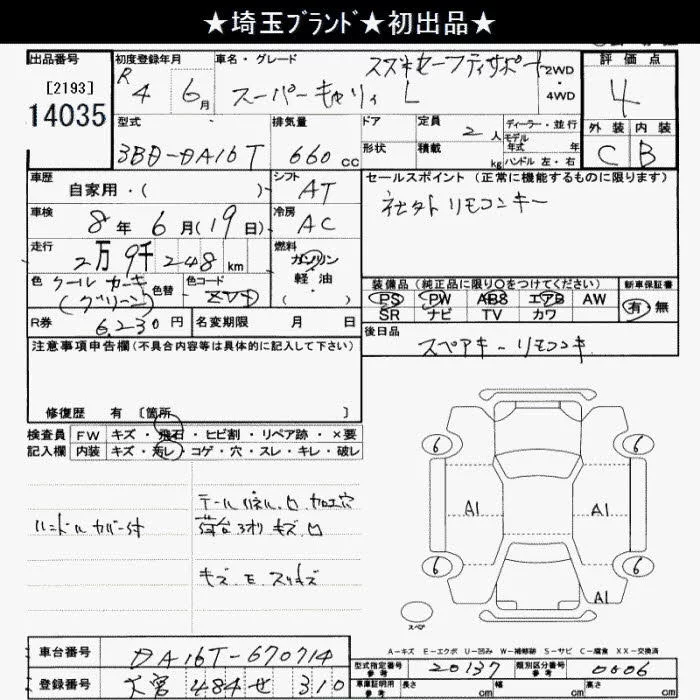 ★埼玉ブランド★初出品★
出品番号
[2193]
14035
初度登録年月
R 4 6月
車名・グレード
スズキセーフティサポート
スーパーキャリイ L
2WD
・
4WD
評価点
4
外装 内装
C B
型式
3BD-DA16T
排気量
660 cc
ドア
形状
定員 2人
積載 kg
ディーラー・並行
モデル年式 年
ハンドル 左・右
車歴
自家用・( )
シフト
AT
車検
8年 6月(19日)
冷房
AC
走行
2万9千248km
燃料
ガソリン
軽油
・( )
色
クールカーキ
(グリーン)
色替
色コード
ZVD
R券
6,230円
名変期限 月 日
セールスポイント(正常に機能するものに限ります)
社外リモコンキー
装備品(純正品に限り○をつけてください)
PS PW ABS エアB AW
SR ナビ TV カワ
新車保証書
有・無
後日品
スペアキー リモコンキー
注意事項申告欄(不具合内容等は具体的に記入して下さい)
修復歴 有〔箇所 〕
検査員記入欄
FW キズ・飛石・ヒビ割・リペア跡・×要
内装 キズ・汚レ・コゲ・穴・スレ・キレ・破レ
ハンドルカバー付
テールパネル.ロ 加工穴
荷台3オリ キズ.ロ
キズ.E.スリキズ
6 6
A1 A1
6 6
A1
スペア
A-キズ E-エクボ U-凹み W-補修跡 S-サビ C-腐食 XX-交換済
車台番号
DA16T-670714
登録番号
大宮 484 せ 310
型式指定番号
参考
20137
類別区分番号
参考
0006
車庫証明用
参考
長さ cm
幅 cm
高さ cm